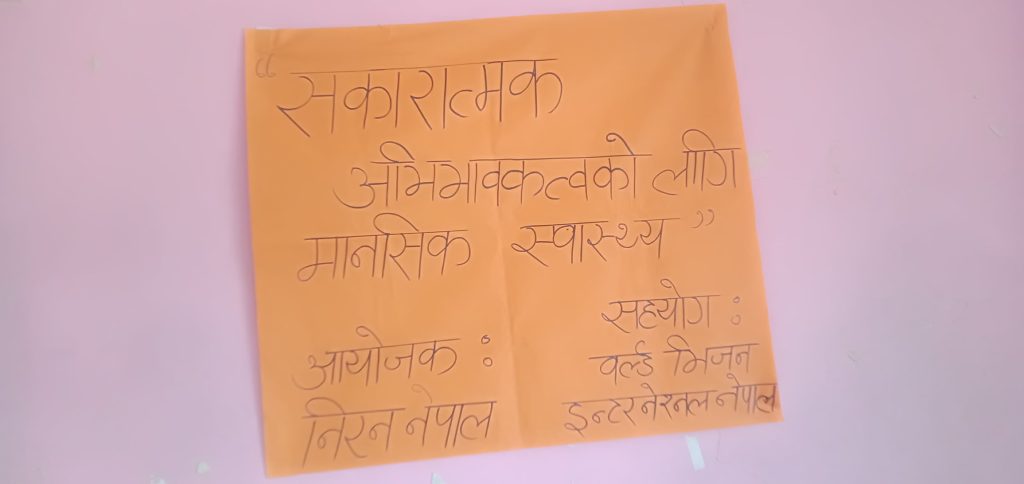 “सकारात्मक
अभिभावकत्वको लागि
मानसिक स्वास्थ्य”
आयोजक :
निरन नेपाल
सहयोग :
वर्ल्ड भिजन
इन्टरनेरनल नेपाल